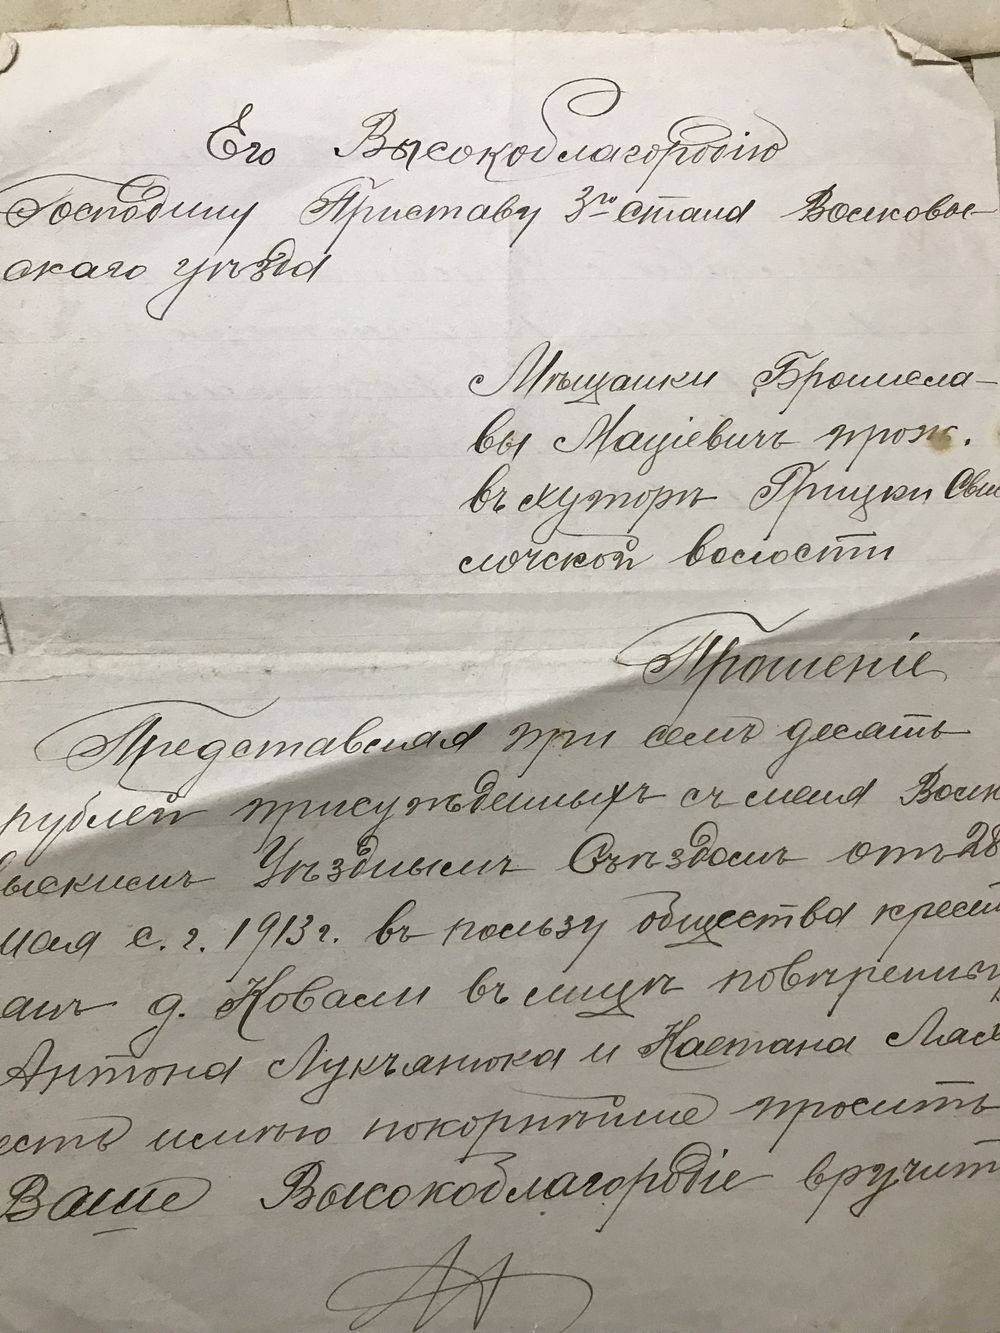 Его Высокоблагородію
Господину Приставу 3го стана Волковы-
скаго уѣзда
Мѣщанки Бронисла-
вы Мацiевичъ прож.
въ хуторѣ Грицки Сви
лочской волости
Прошеніе
Представляя при семъ десять
рублей присужденныхъ съ меня Волк
выскимъ Уѣзднымъ Съѣздомъ отъ 28
мая с. г. 1913 г. въ пользу общества крест
анъ д. Ковали въ лицѣ повѣренны
Антона Лукъянюка и Каетана Лях
есть имѣю покорнѣйше просить
Ваше Высокоблагородіе вручит